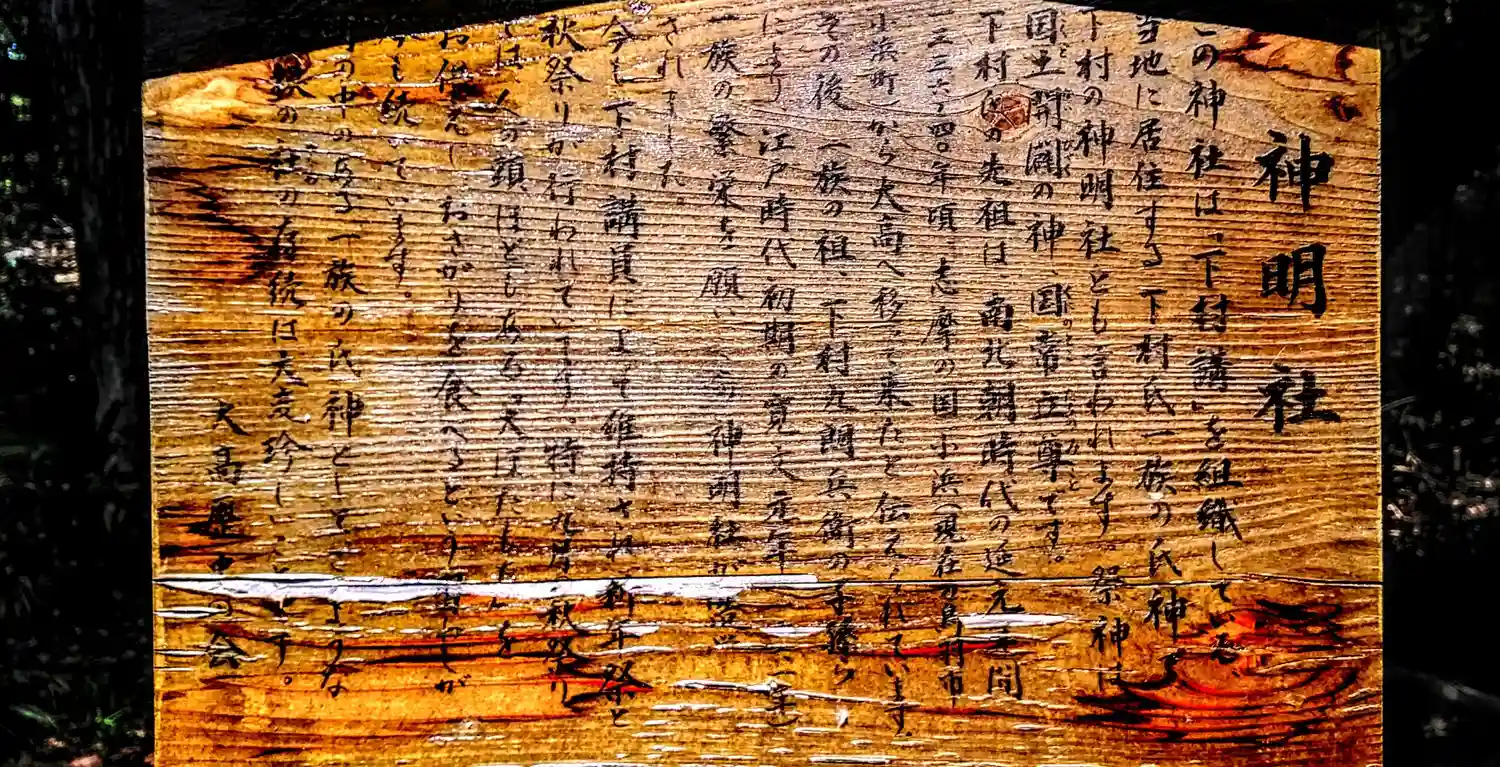 神明社
この神社は、「下村講」を組織している
当地に居住する下村氏一族の氏神
下村の神明社とも言われます 祭神は
国土開闢の神、国常立尊です。
下村氏の先祖は、南北朝時代の延元年間
一三三六~四〇年頃、志摩の国小浜(現在の鳥羽市
小浜町)から大高へ移って来たと伝えられています。
その後、一族の祖、下村九郎兵衛の子孫ら
により 江戸時代初期の寛文元年
一族の繁栄を願い この神明社が
されました。
今も下村講員によって維持され、新年祭と
秋祭りが行われています。特に九月の秋祭り
では 人の頭ほどもある大ぼたもちを
お供えし おさがりを食べるという
今も続いています。
町の中のある一族の氏神としてこのような
社の存続は大変珍しいことです。
大高歴史の会